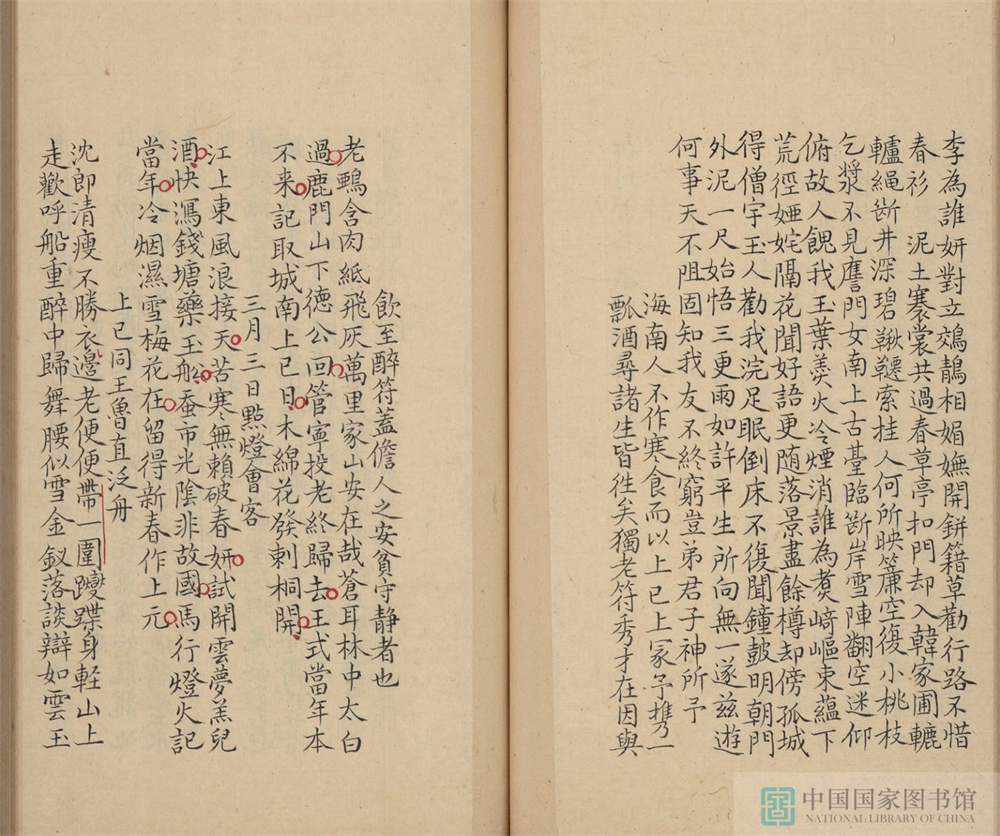 李為誰妍對立鵁鶄相媚嫵開缾籍草勸行路不惜
春衫泥土褰裳共過春草亭扣門却入韓家圃轆
轤繩斷井深碧鞦韆索挂人何所映簾空復小桃枝
乞漿不見譍門女南上古臺臨斷岸雪陣翻空迷仰
俯故人餽我玉葉羮火冷煙消誰為煑﨑嶇東蘊下
荒徑婭姹隔花聞好語更随落景盡餘樽却傍孤城
得僧宇玉人勸我浣足眠倒床不復聞鐘鼓明朝門
外泥一尺始悟三更雨如許平生所向無一遂兹遊
何事天不阻固知我友不終窮豈弟君子神所予
海南人不作寒食而以上巳上冢予携一
瓢酒尋諸生皆徃矣獨老符秀才在因與
飲至醉符蓋儋人之安貧守静者也
老鵶含肉紙飛灰萬里家山安在哉蒼耳林中太白
過鹿門山下徳公回管寧投老終歸去王式當年本
不来記取城南上巳日木綿花發刺桐開
三月三日㸃燈會客
江上東風浪接天苦寒無賴破春妍試開雲夢羔兒
酒快瀉錢塘藥玉舩蚕市光陰非故國馬行燈火記
當年冷烟濕雪梅花在留得新春作上元
上巳同王魯直泛舟
沈郎清瘦不勝衣邉老便便帶一圍躞蹀身軽山上
走歡呼船重醉中歸舞腰似雪金釵落談辯如雲玉
中国国家图书馆
NATIONAL LIBRARY OF CHINA